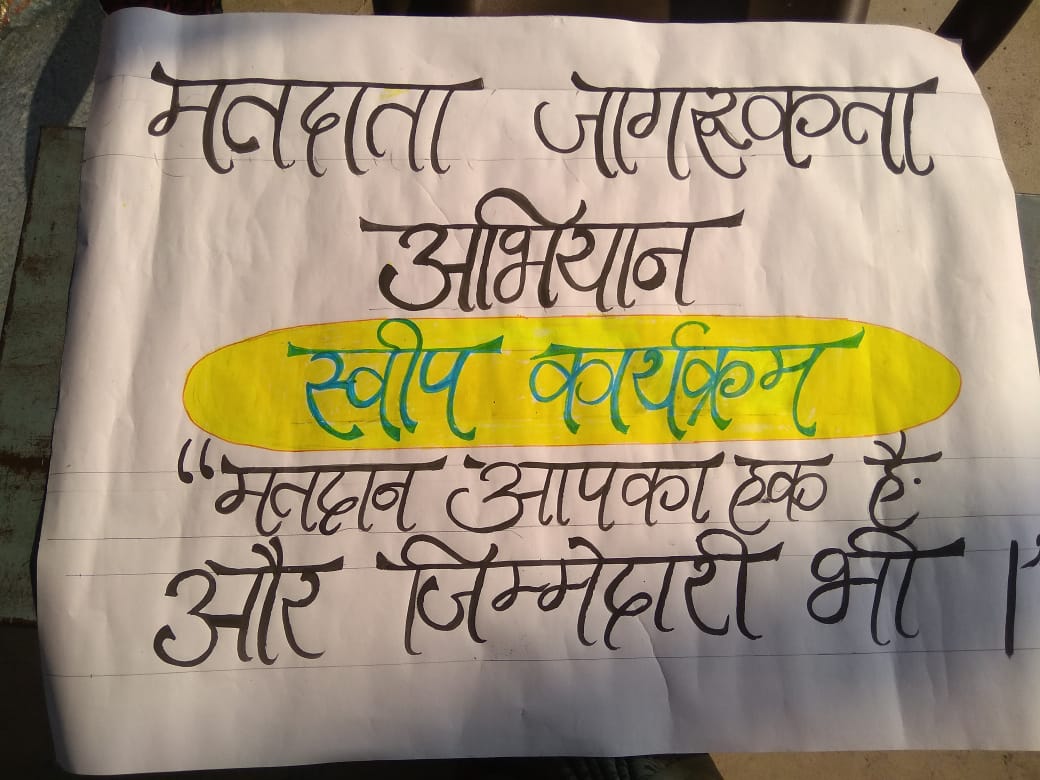 मतदाता जागरूकता
अभियान
स्वीप कार्यक्रम
“मतदान आपका हक है.
और जिम्मेदारी भी ।”